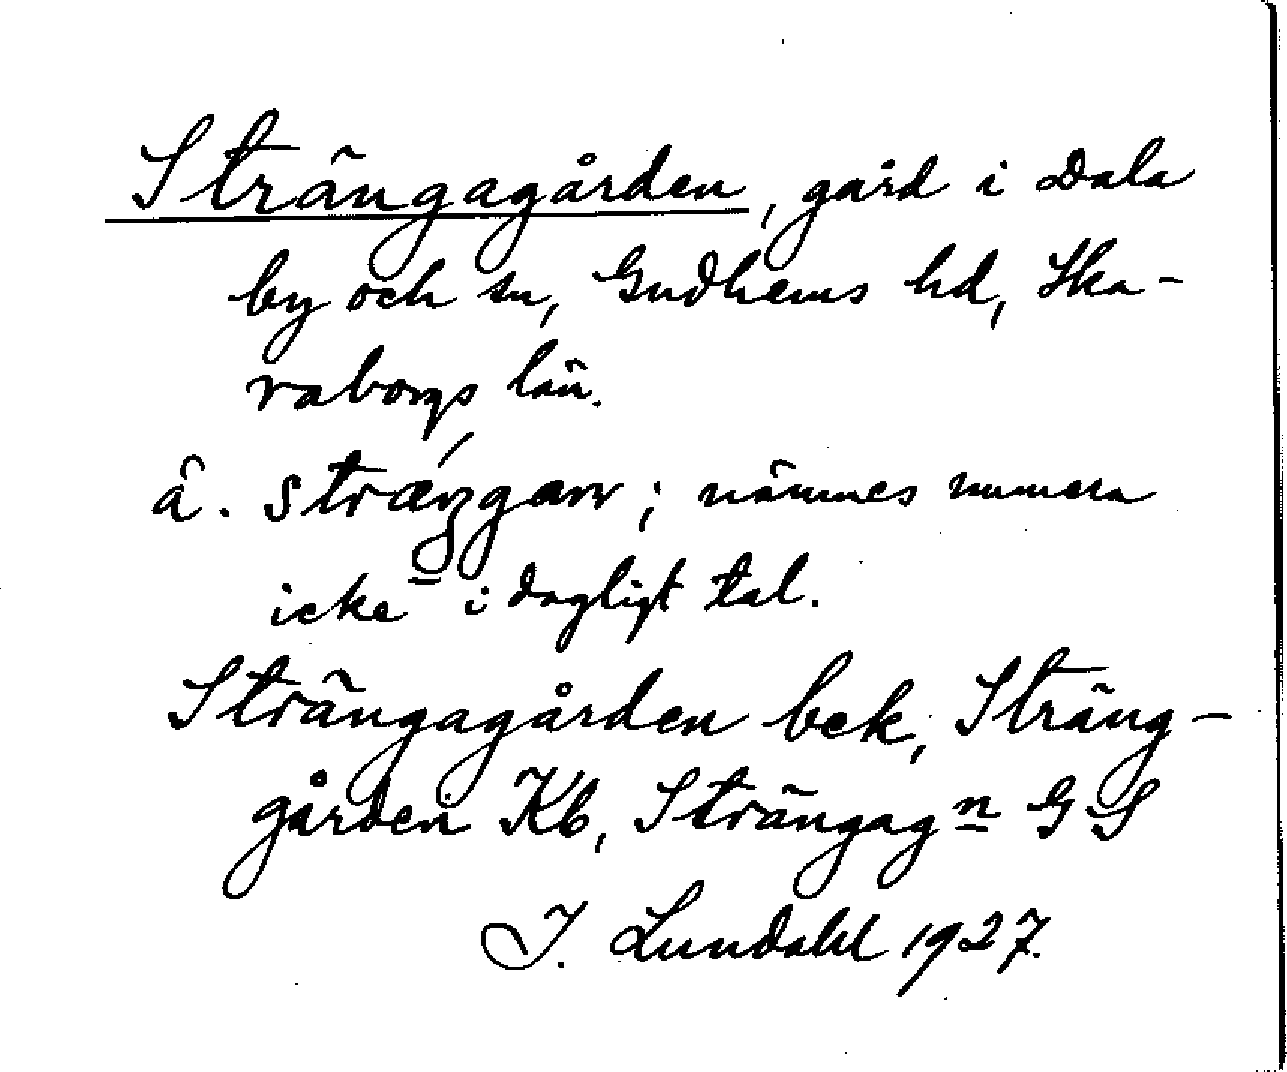 Strängagården, gård i Dala
by och sn, Gudhems hd, Ska-
raborgs län.
ä. 
; nämnes numera
icke i dagligt tal.
Strängagården bek, Sträng-
gården Kb, Strängagn GS
I. Lundahl 1927.